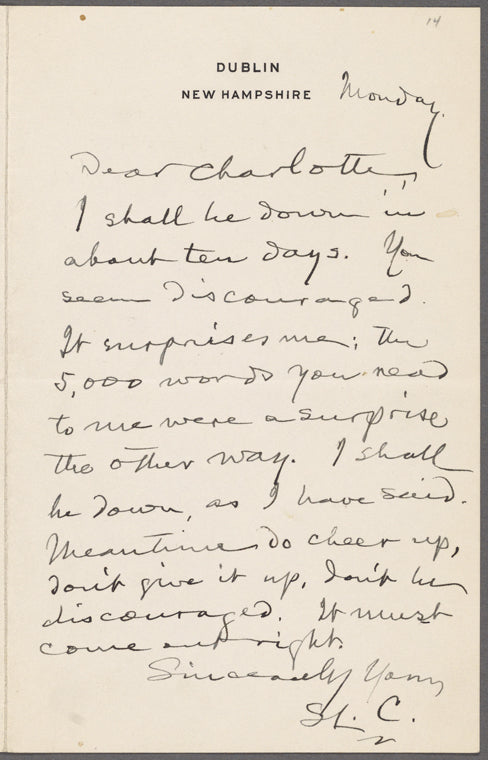 14
DUBLIN
NEW HAMPSHIRE
Monday.
Dear Charlotte,
I shall be down in
about ten days. You
seem discouraged.
It surprises me; the
5,000 words you read
to me were a surprise
the other way. I shall
be down, as I have said.
Meantime do cheer up,
don't give it up, don't be
discouraged. It must
come out right.
Sincerely Yours
St. C.